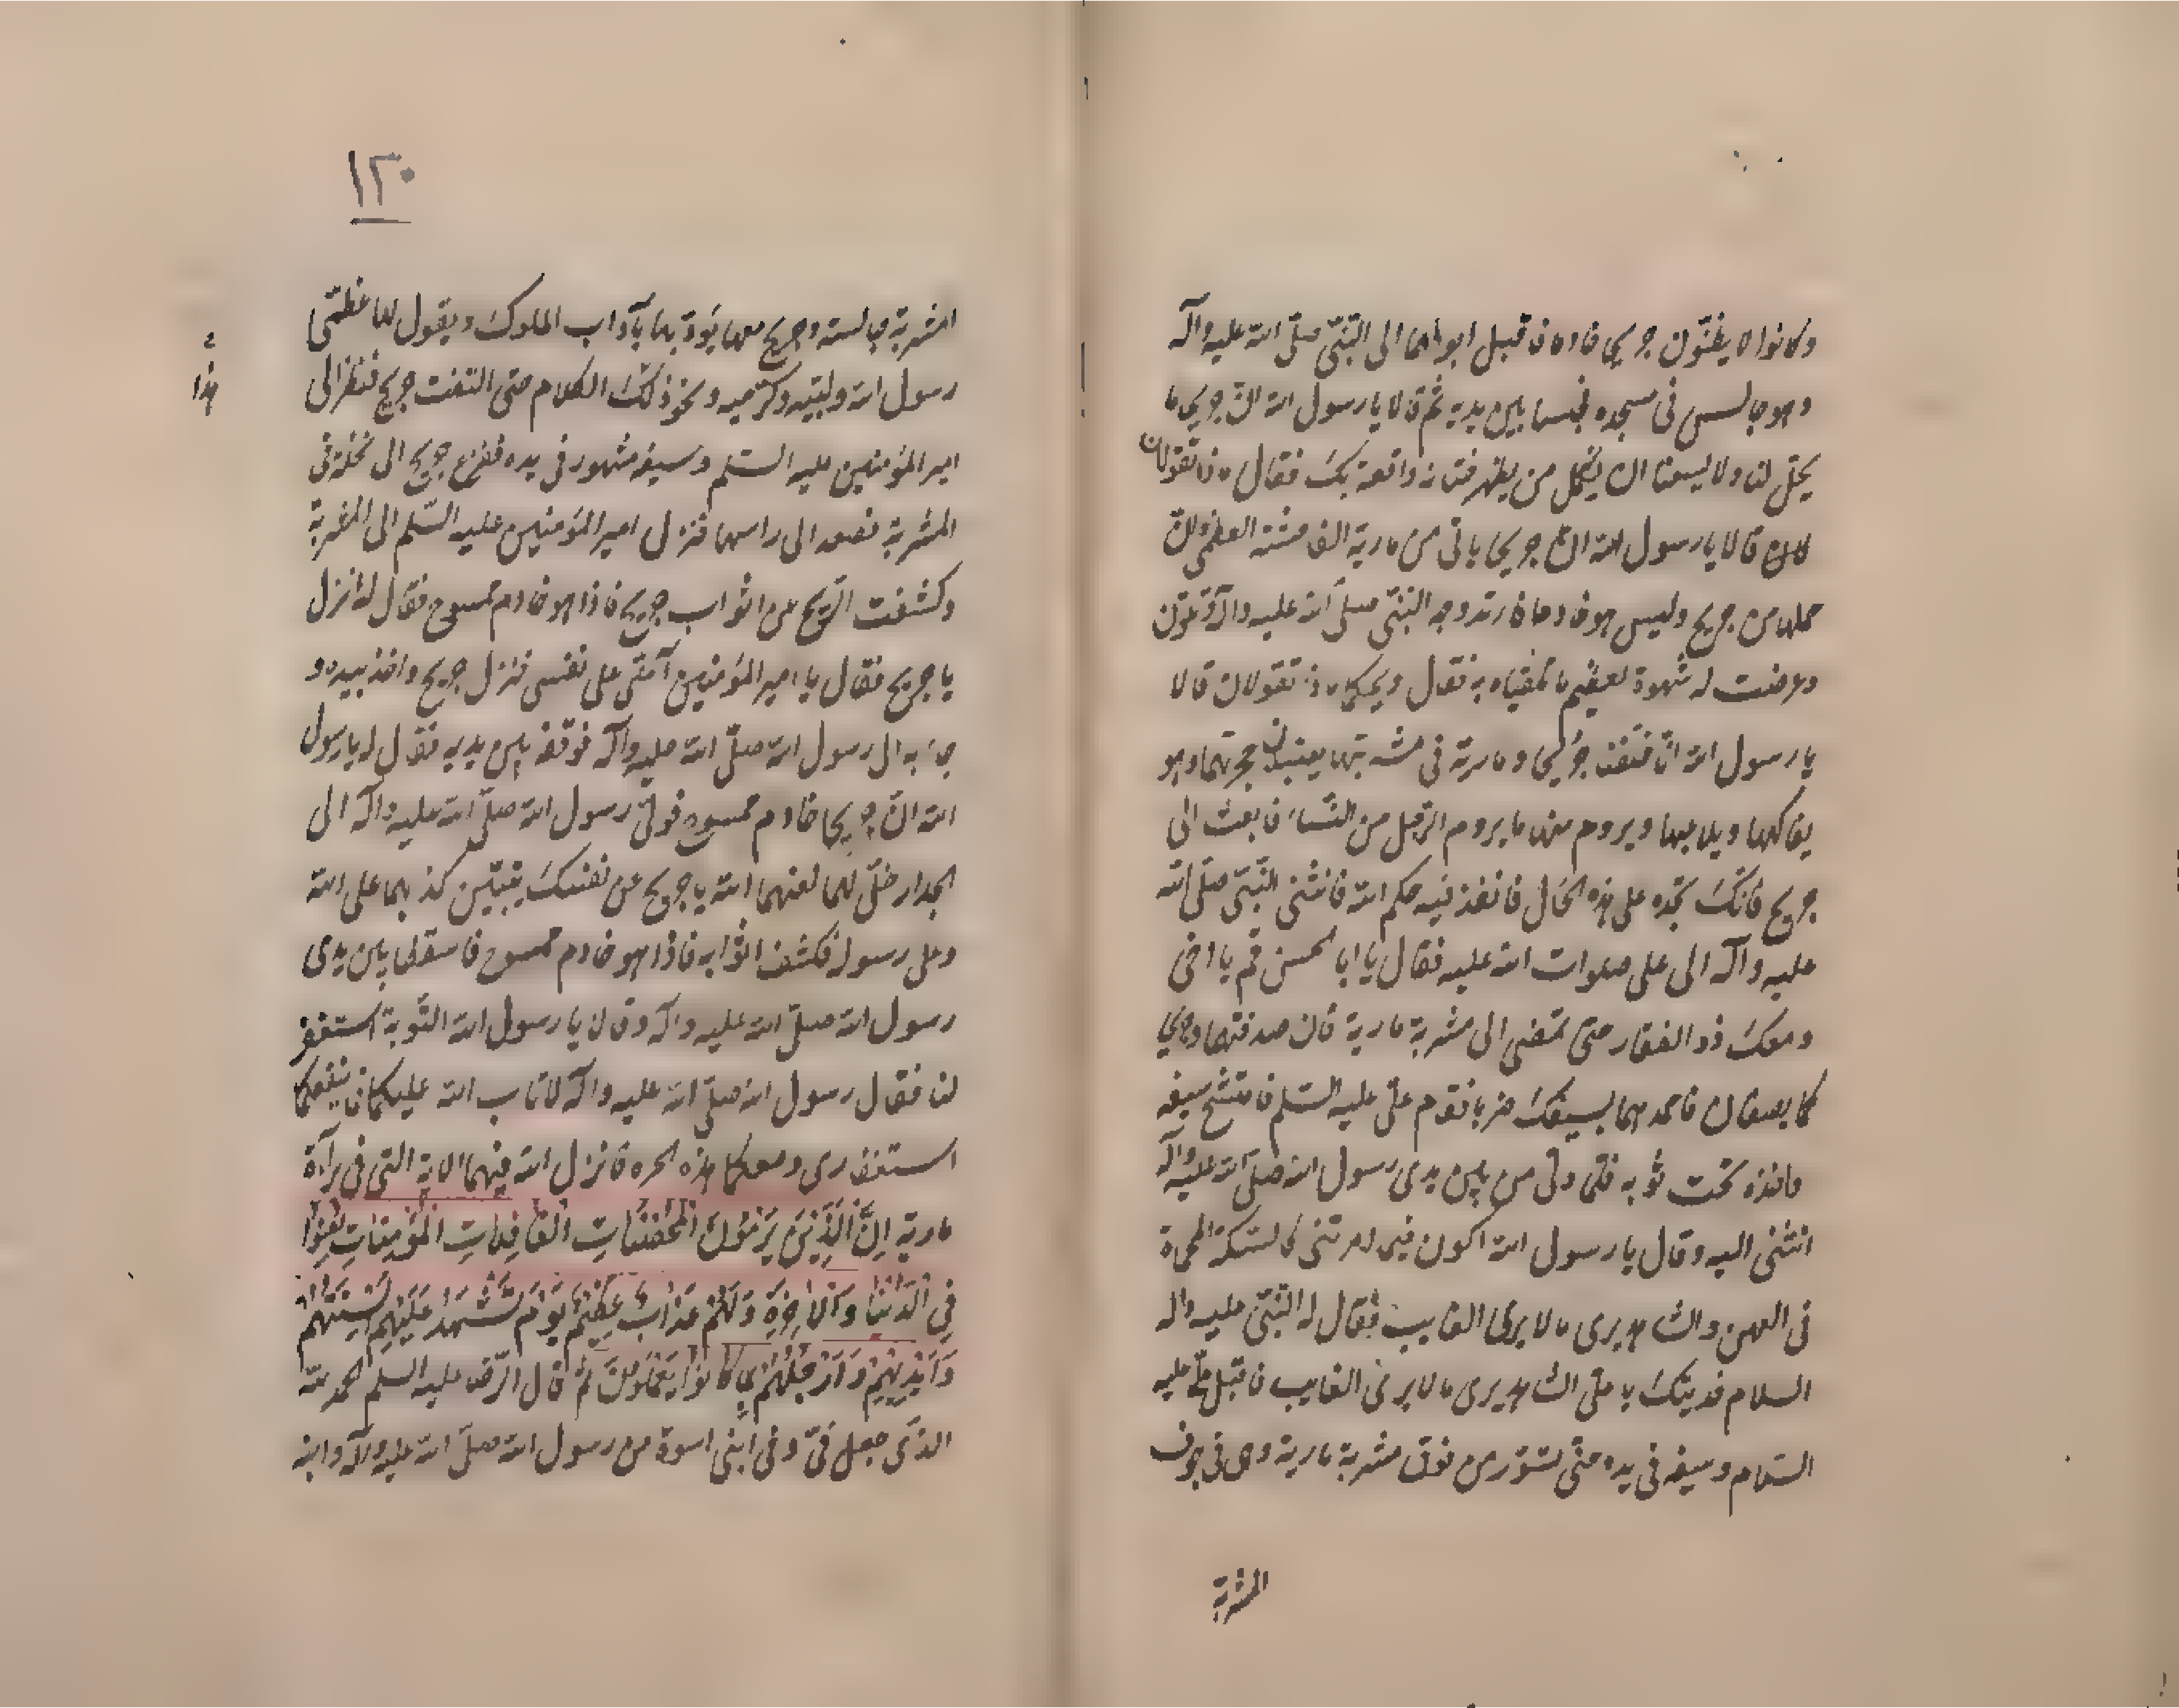 وكانوا لا يظنّون جريحا خادما فاقبل ابواهما الى النّبىّ صلّى الله عليه وآله
وهو جالس فى مسجده فجلسا بين يديه ثم قالا يا رسول الله انّ جريحا ما
يحلّ لنا ولا يسعنا ان يحمل من يظهر فتنة واقعة بك فقال ماذا تقولان
قالا يا رسول الله انّ جريحا ياتى من مارية الفاحشة العظمى وانّ
حملها من جريح وليس هو خادما فاربد وجه النّبىّ صلّى الله عليه وآله وتلوّن
وعرضت له شهوة لعظيم ما تلقياه به فقال ويحكما ماذا تقولان قالا
يا رسول الله انّا خلّفنا جريحا ومارية فى مشربتها يعنيان حجرتها وهو
يفاكهها ويلاعبها ويروم منها ما يروم الرّجل من النّساء فابعث الى
جريح فانّك تجده على هذه الحال فانفذ فيه حكم الله فانثنى النّبىّ صلّى الله
عليه وآله الى على صلوات الله عليه فقال يا ابا الحسن قم يا اخى
ومعك ذو الفقار حتى تمضى الى مشربة مارية فان صدفتها وجريحا
كما يصفان فاخمدهما بسيفك ضربا فقام علىّ عليه السّلم فاتّشح سيفه
واخذه تحت ثوبه فلمّا ولّى من بين يدى رسول الله صلّى الله عليه وآله
انثنى اليه وقال يا رسول الله اكون فيما امرتنى كالسّكة المحماة
فى العهن والشاهد يرى ما لا يرى الغايب فقال له النّبىّ عليه وآله
السلام فديتك يا على الشاهد يرى ما لا يرى الغايب فاقبل علىّ عليه
السّلام وسيفه فى يده حتّى تسوّر من فوق مشربة مارية وهى فى جوف
المشربة
١٣٠
المشربة جالسة وجريح معها يؤدّبها بآداب الملوك ويقول لها عظّمى
رسول الله ولبّيه وكرّميه ونحو ذلك الكلام حتى التفت جريح فنظر الى
امير المؤمنين عليه السّلم وسيفه مشهور فى يده ففزع جريح الى نخلة فى
المشربة فصعد الى راسها فنزل امير المؤمنين عليه السّلم الى المشربة
وكشفت الرّيح عن اثواب جريح فاذا هو خادم ممسوح فقال له انزل
يا جريح فقال يا امير المؤمنين آمنّى على نفسى فنزل جريح واخذ بيده و
جاء به الى رسول الله صلّى الله عليه وآله فوقفه بين يديه فقال له يا رسول
الله انّ جريحا خادم ممسوح فولّى رسول الله صلّى الله عليه وآله الى
الجدار حلّ لهما لعنهما الله يا جريح عن نفسك يتبيّن كذبهما على الله
وعلى رسوله فكشف اثوابه فاذا هو خادم ممسوح فاسقطا بين يدى
رسول الله صلّى الله عليه وآله وقالا يا رسول الله التّوبة استغفر
لنا فقال رسول الله صلّى الله عليه وآله لا تاب الله عليكما فما ينفعكما
استغفارى ومعكما هذه الجرءة فانزل الله فيهما الاية التى فى برآءة
مارية اِنَّ الَّذِينَ يَرْمُونَ الْمُحْصَنَاتِ الْغَافِلَاتِ الْمُؤْمِنَاتِ لُعِنُوا
فِى الدُّنْيَا وَالْاٰخِرَةِ وَلَهُمْ عَذَابٌ عَظِيمٌ يَوْمَ تَشْهَدُ عَلَيْهِمْ اَلْسِنَتُهُمْ
وَاَيْدِيهِمْ وَاَرْجُلُهُمْ بِمَا كَانُوا يَعْمَلُونَ ثم قال الرّضا عليه السلم الحمد لله
الذى جعل فىّ وفى ابنى اسوة من رسول الله صلّى الله عليه وآله وابنه
هذا